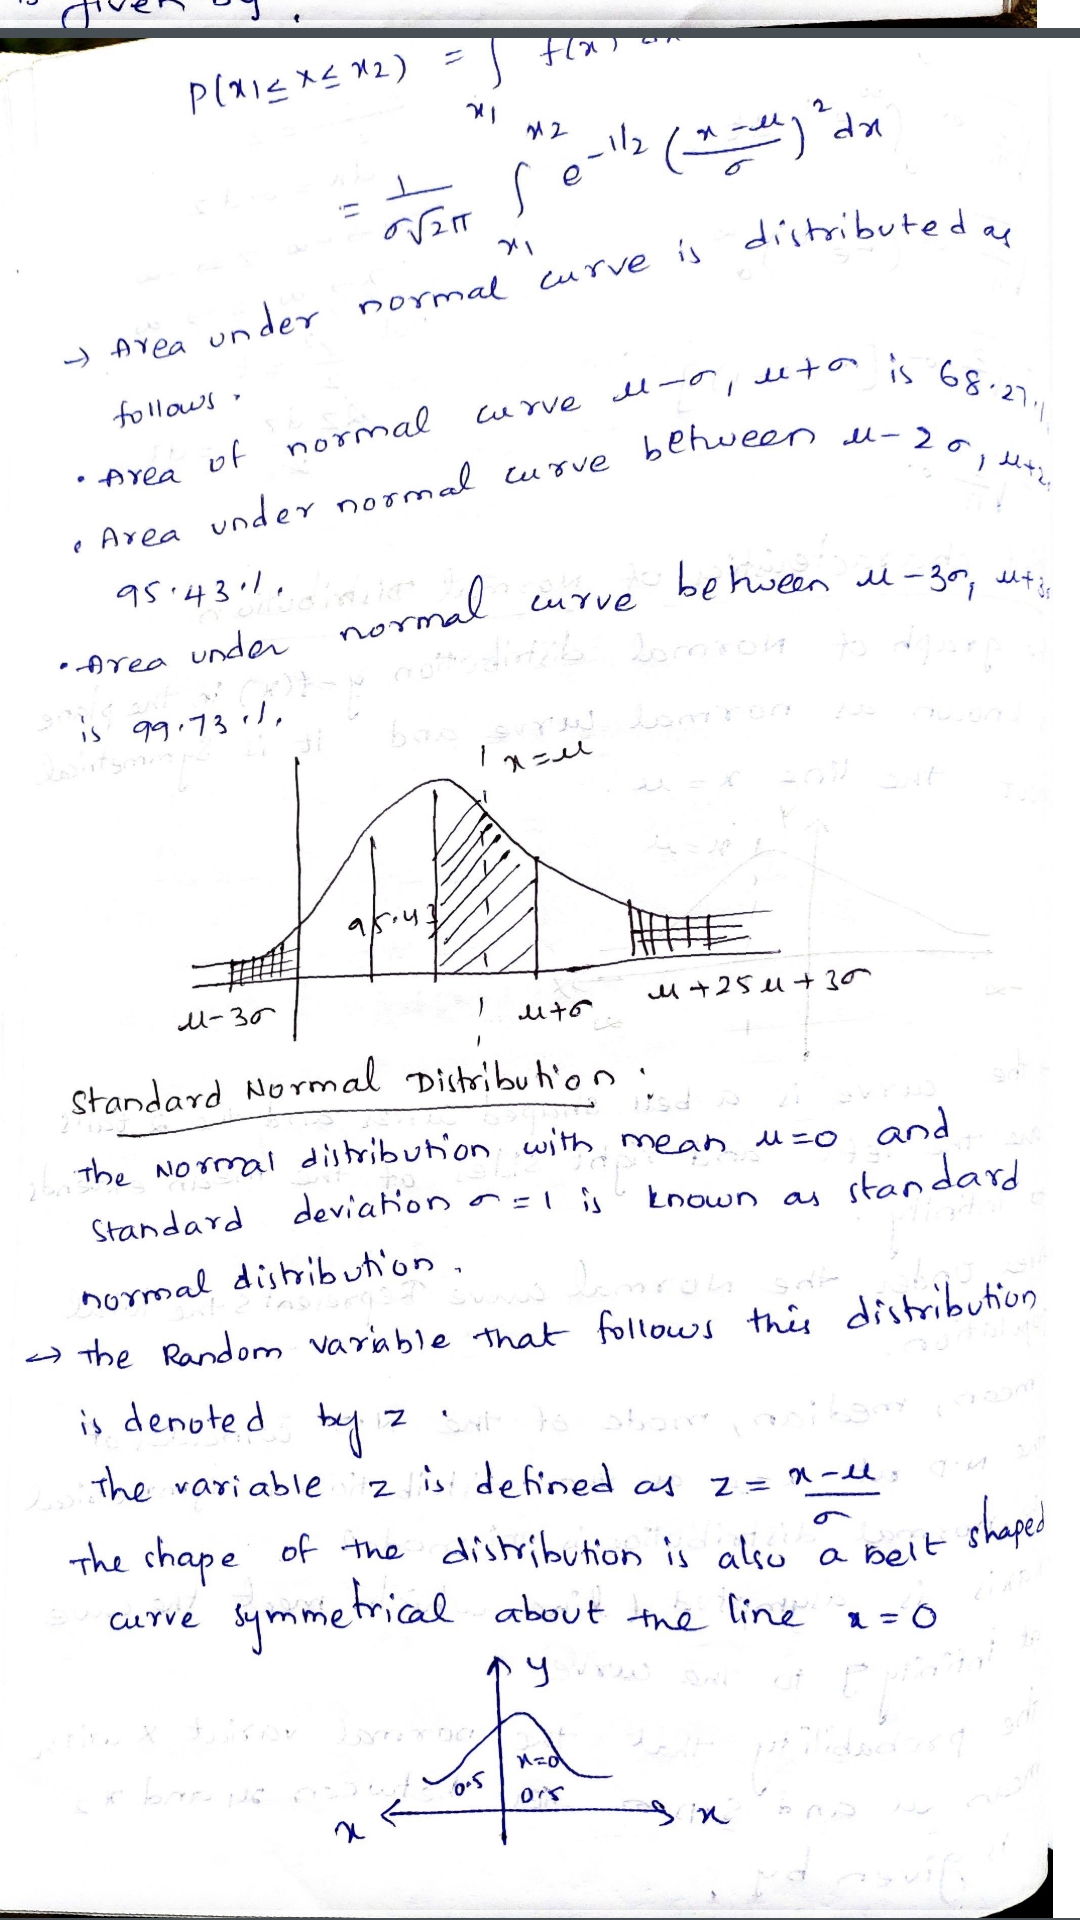 given by.
P(x1 ≤ x ≤ x2) = ∫ f(x) dx
x1
= 1/σ√2π ∫ x1 x2 e^-1/2 (x-μ/σ)^2 dx
→ Area under normal curve is distributed as
follows.
• Area of normal curve μ-σ, μ+σ is 68.27%
• Area under normal curve between μ-2σ, μ+2
95.43%.
• Area under normal curve between μ-3σ, μ+3σ
is 99.73%.
x=μ
95.43
μ-3σ μ+σ μ+2s μ+3σ
Standard Normal Distribution:
The Normal distribution with mean μ=0 and
Standard deviation σ=1 is known as standard
normal distribution.
↔ The Random variable that follows this distribution
is denoted by z.
The variable z is defined as z = x-μ/σ.
The shape of the distribution is also a belt shaped
curve symmetrical about the line x=0
y
x=0
0.5 0.5
x x